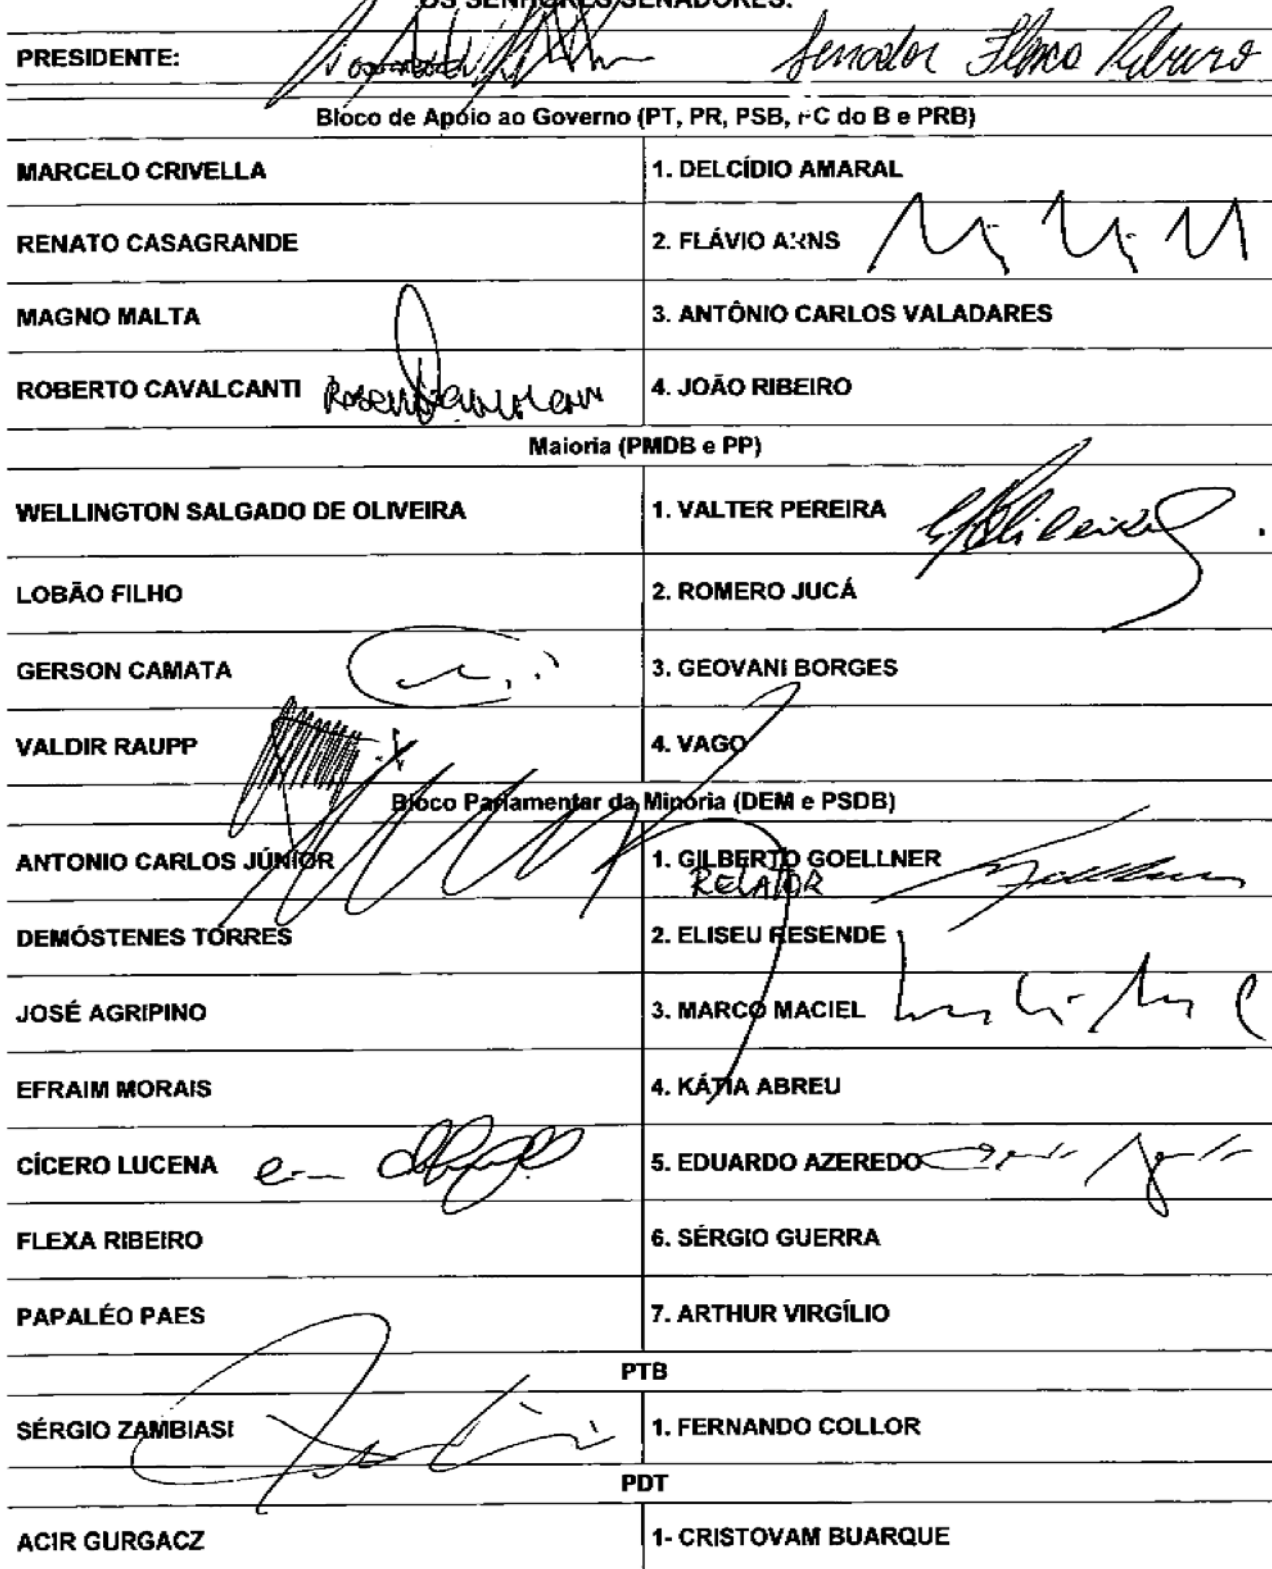 OS SENHORES SENADORES:
PRESIDENTE: Senador Flexa Ribeiro
Bloco de Apoio ao Governo (PT, PR, PSB, PC do B e PRB)
MARCELO CRIVELLA 1. DELCÍDIO AMARAL
RENATO CASAGRANDE 2. FLÁVIO ARNS
MAGNO MALTA 3. ANTÔNIO CARLOS VALADARES
ROBERTO CAVALCANTI 4. JOÃO RIBEIRO
Maioria (PMDB e PP)
WELLINGTON SALGADO DE OLIVEIRA 1. VALTER PEREIRA
LOBÃO FILHO 2. ROMERO JUCÁ
GERSON CAMATA 3. GEOVANI BORGES
VALDIR RAUPP 4. VAGO
Bloco Parlamentar da Minoria (DEM e PSDB)
ANTONIO CARLOS JÚNIOR 1. GILBERTO GOELLNER
RELATOR
DEMÓSTENES TORRES 2. ELISEU RESENDE
JOSÉ AGRIPINO 3. MARCO MACIEL
EFRAIM MORAIS 4. KÁTIA ABREU
CÍCERO LUCENA 5. EDUARDO AZEREDO
FLEXA RIBEIRO 6. SÉRGIO GUERRA
PAPALÉO PAES 7. ARTHUR VIRGÍLIO
PTB
SÉRGIO ZAMBIASI 1. FERNANDO COLLOR
PDT
ACIR GURGACZ 1- CRISTOVAM BUARQUE